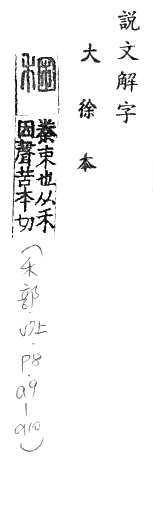 說文解字
大徐本
稛
絭束也从禾
囷聲苦本切
（禾部.七上.P8.a9-a10）